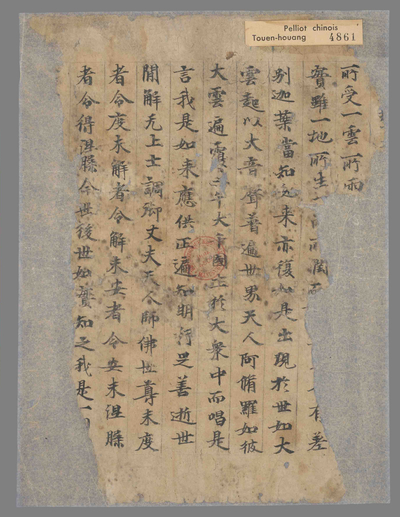 Pelliot chinois
Touen-houang 4861
所受一雲所雨
實雖一地所生一雨所潤 有差
別迦葉當知如来亦復如是出現於世如大
雲起以大音聲普遍世界天人阿脩羅如彼
大雲遍覆三千大千國土於大衆中而唱是
言我是如来應供正遍知明行足善逝世
間解无上士調御丈夫天人師佛世尊未度
者令度未解者令解未安者令安未涅槃
者令得涅槃今世後世如實知之我是一